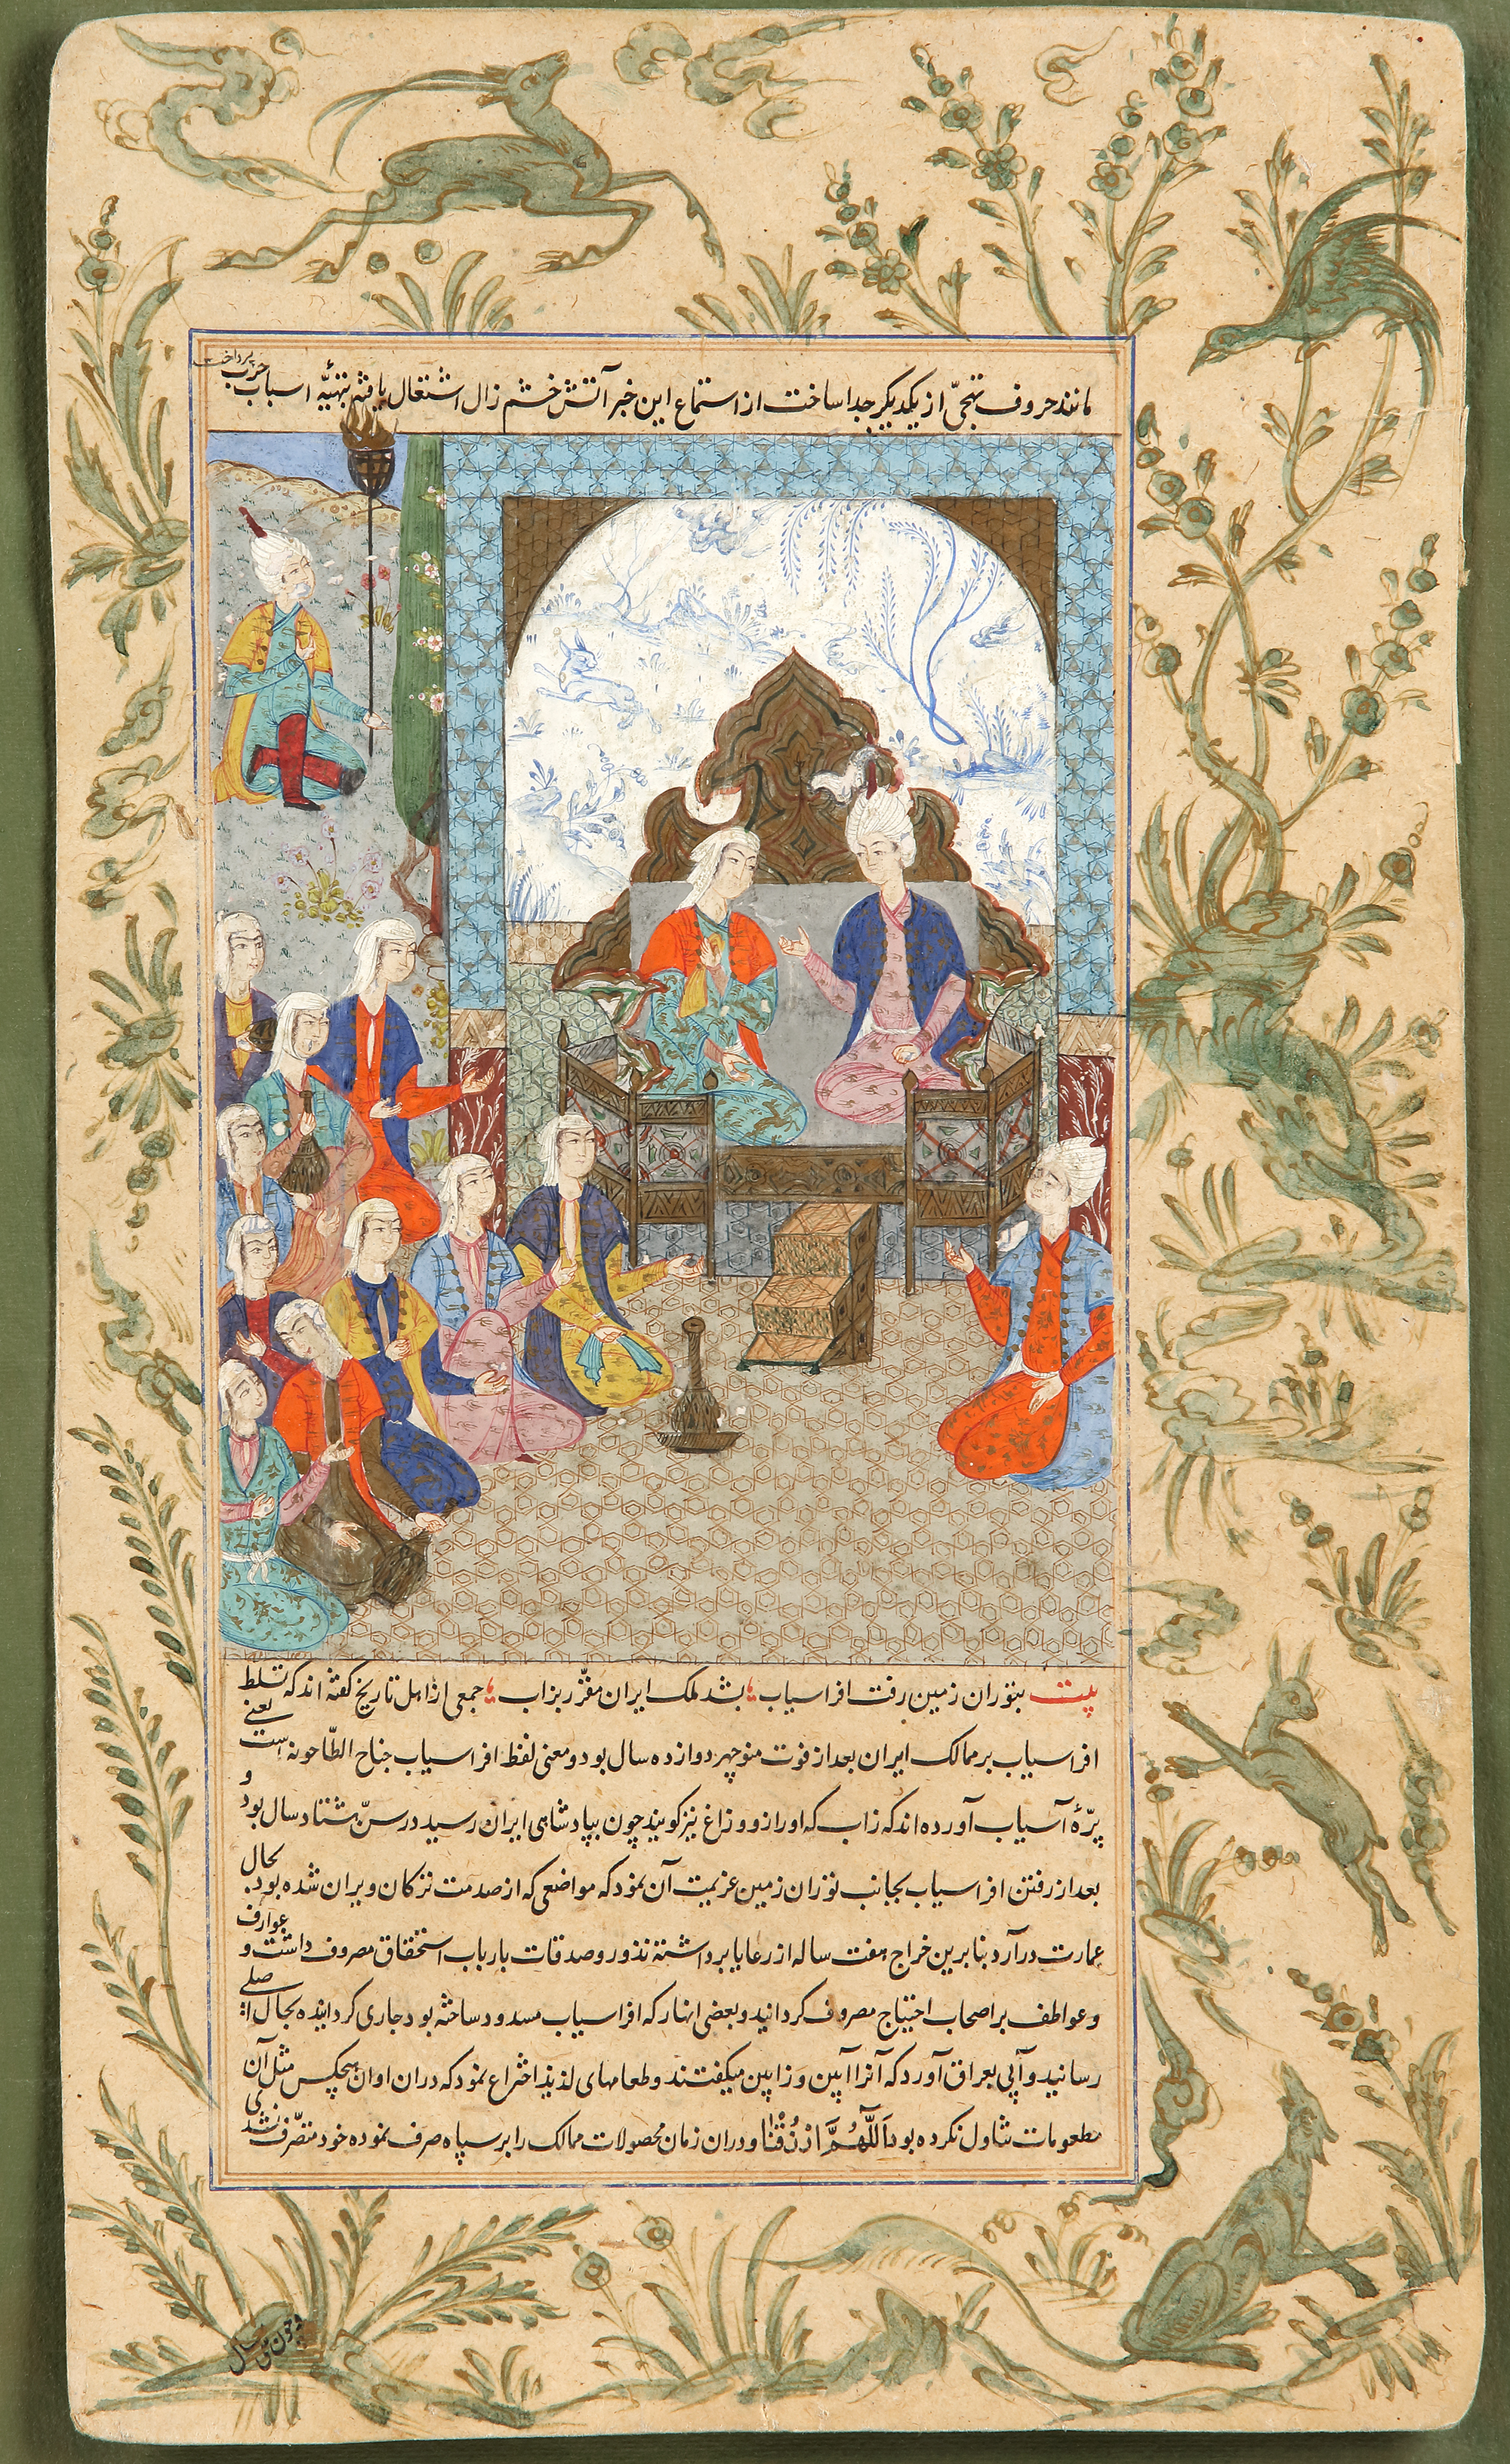 مانند حروف تهجّی از یکدیگر جدا ساخت از استماع این خبر آتش خشم زال اشتغال یافته بتهیّه اسباب حرب پرداخت
بیت بتوران زمین رفت افراسیاب بشد ملک ایران مقرّر بزاب جمعی از اهل تاریخ گفته اند که تسلط
افراسیاب بر ممالک ایران بعد از فوت منوچهر دوازده سال بود و معنی لفظ افراسیاب جناح الطّاحونه است یعنی
پرّهٔ آسیاب آورده اند که زاب که او را زو و زاغ نیز گویند چون بپادشاهی ایران رسید در سنّ هشتاد سال بود و
بعد از رفتن افراسیاب بجانب توران زمین عزیمت آن نمود که مواضعی که از صدمت ترکان ویران شده بود بحال
عمارت درآرد بنا برین خراج هفت ساله از رعایا برداشته نذور و صدقات بارباب استحقاق مصروف داشت و عوارف
و عواطف بر اصحاب احتیاج مصروف گردانید و بعضی انهار که افراسیاب مسدود ساخته بود جاری گردانیده بحال اصلی
رسانید و آبی بعراق آورد که آنرا آبین و زابین میگفتند و طعامهای لذیذ اختراع نمود که دران اوان هیچکس مثل آن
مطعومات تناول نکرده بود اَللّٰهُمَّ ارْزُقْنٰا و دران زمان محصولات ممالک را بر سپاه صرف نموده خود متصّرف نشدی
و چون سال